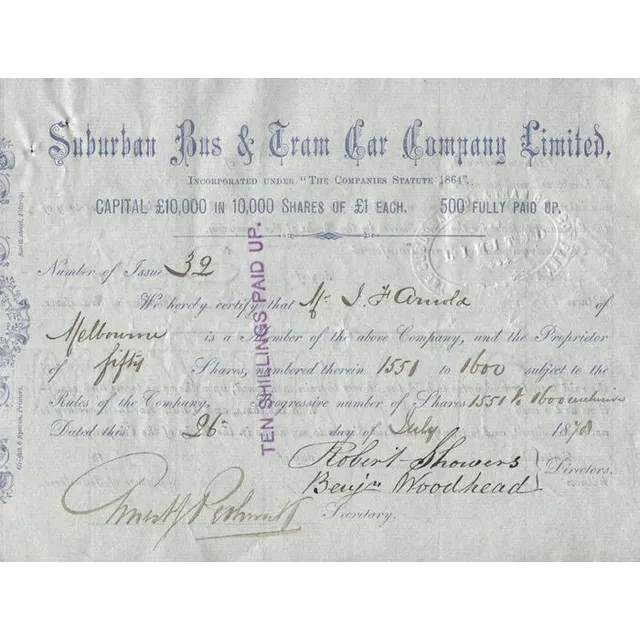 Suburban Bus & Tram Car Company Limited.
INCORPORATED UNDER "THE COMPANIES STATUTE 1864".
CAPITAL £10,000 IN 10,000 SHARES OF £1 EACH. 500 FULLY PAID UP.
Number of Issue 32
We hereby certify that Mr J. F Arnold of
Melbourne is a Member of the above Company, and the Proprietor
of fifty Shares, numbered therein 1551 to 1600 subject to the
Rules of the Company. Progressive number of Shares 1551 to 1600 inclusive
Dated this 26 day of July 1878
Robert Showers
Benjn Woodhead
Directors.
Secretary.
TEN SHILLINGS PAID UP.